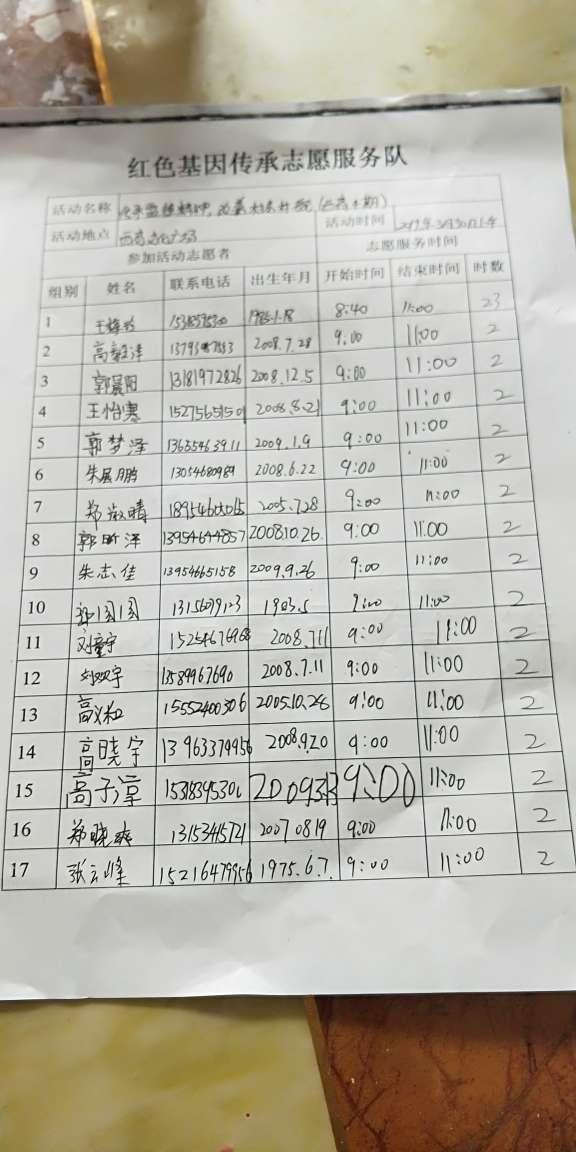 红色基因传承志愿服务队
活动名称
活动时间
活动地点
参加活动志愿者 志愿服务时间
组别 姓名 联系电话 出生年月 开始时间 结束时间 时数
1 8:40 11:00
2 2008.7.28 9:00 11:00 2
3 郭晨阳 13181972826 2008.12.5 9:00 11:00 2
4 王怡寒 2008.8.21 9:00 11:00 2
5 郭梦泽 13655463911 2009.1.9 9:00 11:00 2
6 朱展鹏 13054680989 2008.6.22 9:00 11:00 2
7 郑淑晴 2005.7.28 9:00 11:00 2
8 郭昕泽 13954644857 200810.26. 9:00 11:00 2
9 朱志佳 13954665158 2009.9.26 9:00 11:00 2
10 1983.5 9:00 11:00 2
11 刘童宇 15254676968 2008.7.11 9:00 11:00 2
12 刘双宇 13589967690 2008.7.11 9:00 11:00 2
13 15552400306 2005.10.28 9:00 11:00 2
14 高晓宇 13963379956 2008.9.20 9:00 11:00 2
15 高子淳 9:00 11:00 2
16 郑晓爽 13153415721 20070819 9:00 11:00 2
17 张云峰 15216479956 1975.6.7. 9:00 11:00 2